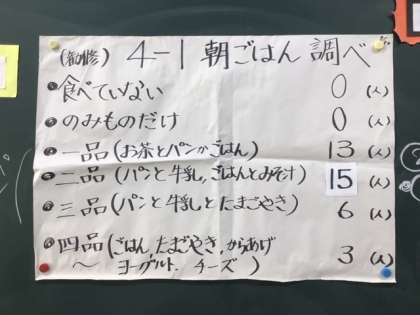 4-1 朝ごはん 調べ
食べていない 0 (人)
のみものだけ 0 (人)
一品(お茶とパンかごはん) 13 (人)
二品(パンと牛乳,ごはんとみそ汁) 15 (人)
三品(パンと牛乳とたまごやき) 6 (人)
四品(ごはん,たまごやき,からあげ 3 (人)
〜 ヨーグルト,チーズ)